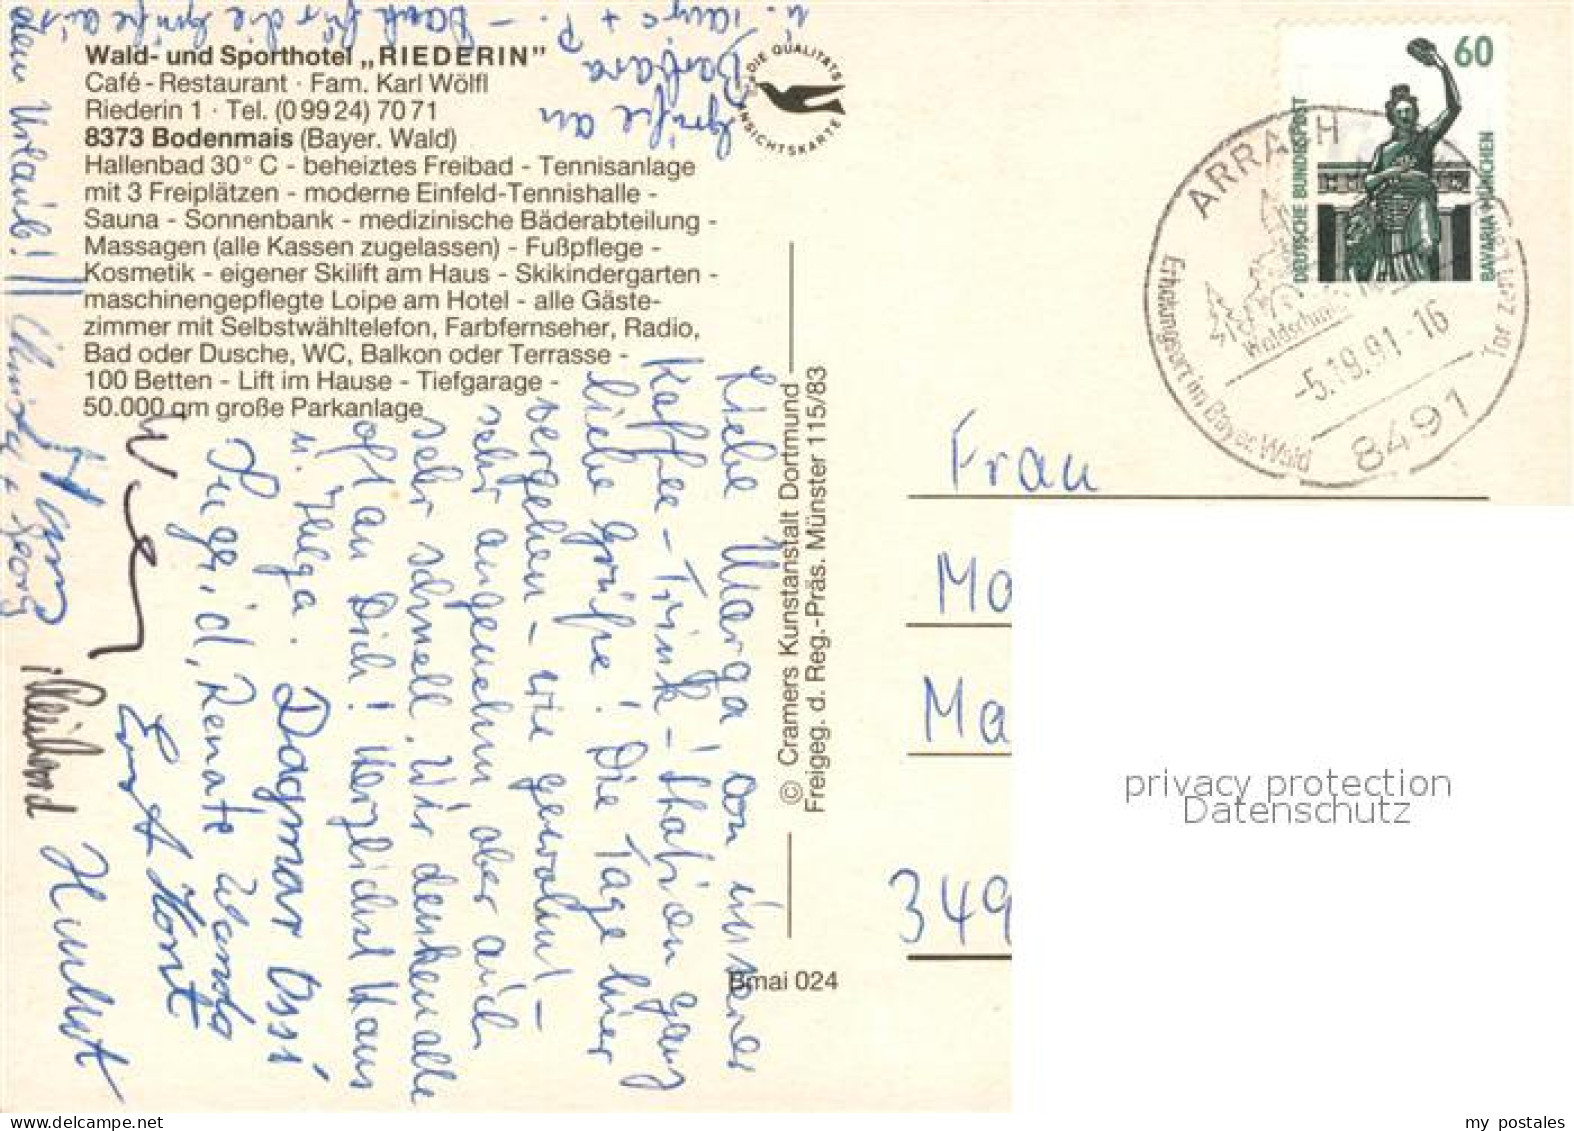 Wald- und Sporthotel „RIEDERIN”
Café - Restaurant · Fam. Karl Wölfl
Riederin 1 · Tel. (0 99 24) 70 71
8373 Bodenmais (Bayer. Wald)
Hallenbad 30° C - beheiztes Freibad - Tennisanlage
mit 3 Freiplätzen - moderne Einfeld-Tennishalle -
Sauna - Sonnenbank - medizinische Bäderabteilung -
Massagen (alle Kassen zugelassen) - Fußpflege -
Kosmetik - eigener Skilift am Haus - Skikindergarten -
maschinengepflegte Loipe am Hotel - alle Gäste-
zimmer mit Selbstwähltelefon, Farbfernseher, Radio,
Bad oder Dusche, WC, Balkon oder Terrasse -
100 Betten - Lift im Hause - Tiefgarage -
50.000 qm große Parkanlage
DIE QUALITÄTS
ANSICHTSKARTE
Liebe Marga! Von unserer
Kaffee-Trink-Station ganz
liebe Grüße! Die Tage hier
vergehen - wie gewohnt -
sehr angenehm aber auch
sehr schnell. Wir denken alle
oft an Dich! Herzlichst Hans
u. Helga. Dagmar Ossi
Ingrid, Renate Wanda
Ernst Horst
Reinhard
Christa + Georg
Grüße an
Barbara
+ P. - Dank für die Grüße aus
dem Urlaub!
© Cramers Kunstanstalt Dortmund
Freigeg. d. Reg.-Präs. Münster 115/83
Bmai 024
60
DEUTSCHE BUNDESPOST
BAVARIA MÜNCHEN
ARRACH
Erholungsort im Bayer. Wald
Tor zum
-5.19.91-16
8491
Frau
Ma
Ma
349
privacy protection
Datenschutz
my postales